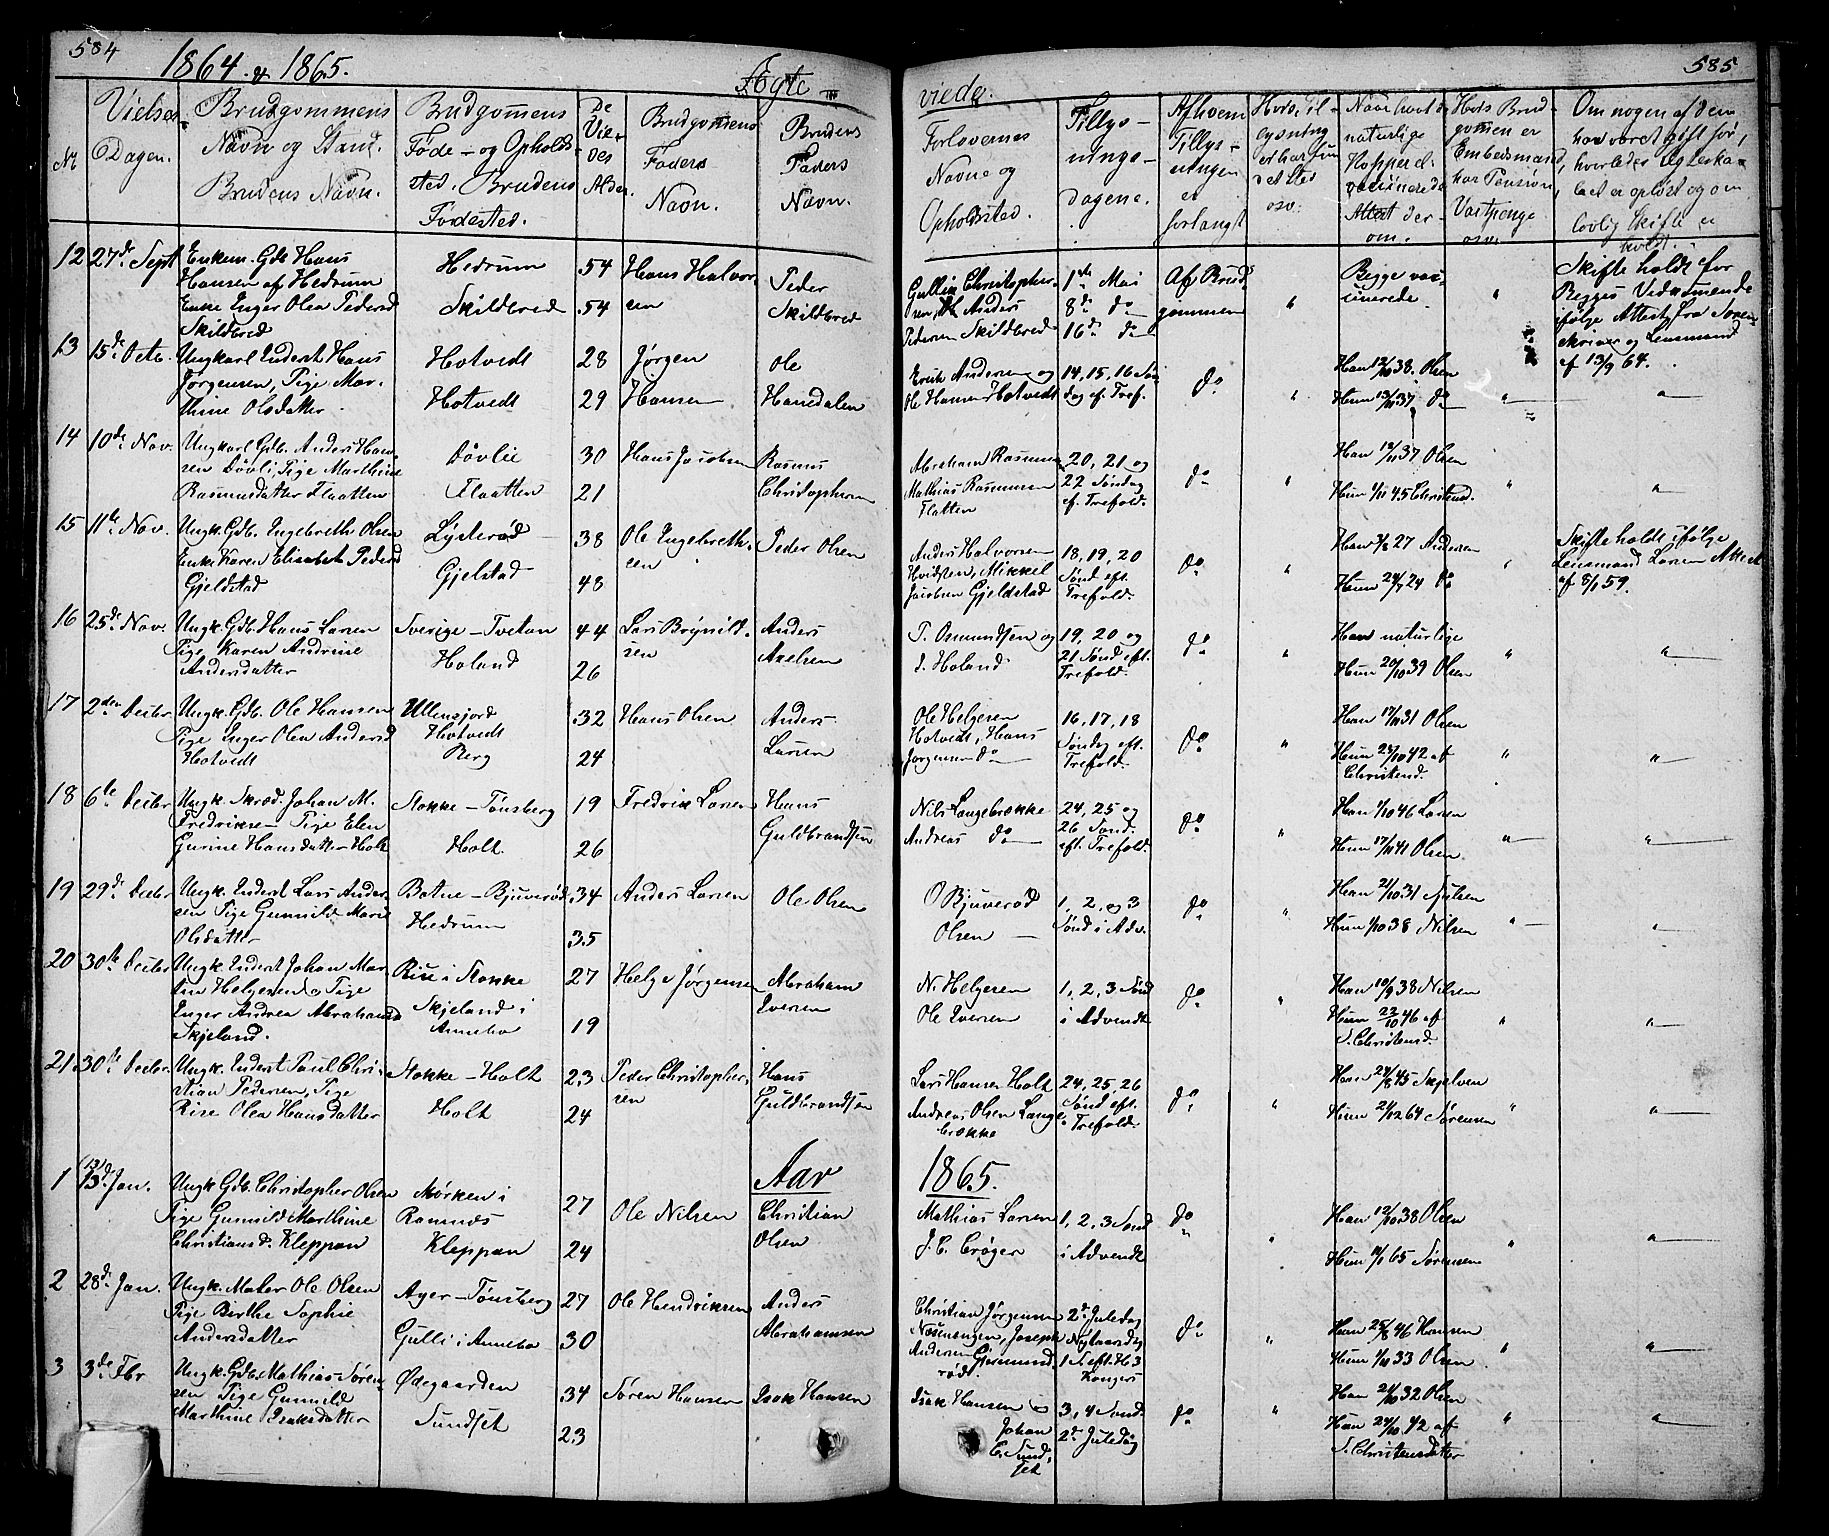 584
1864 & 1865.
Ægte-
viede.
585
Nr
Vielses-
Dagen.
Brudgommens
Navn og Stand.
Brudens Navn.
Brudgomens
Føde- og Opholds-
sted. Brudens
Fødested.
De
Vie-
des
Alder.
Brudgomens
Faders
Navn.
Brudens
Faders
Navn.
Forlovernes
Navne og
Opholdsted.
Tillys-
nings-
dagene.
Af hvem
Tillys-
ningen
er
forlangt
Hvis Til-
lysning
osv.
naturlige
Kopper el.
vaccinerede
Attest der-
om.
Hvis Brud-
gommen er
Embedsmand,
har Pension,
Vartpenge
osv.
Om nogen af dem
har været gift før,
hvorledes Ægteska-
bet er opløst og om
lovlig Skifte er
holdt.
12 27de Sept Enkem. Gdb. Hans
Hansen af Hedrum
Enke Inger Olea Pedersd
Skildbred
Hedrum
Skildbred
54
54
Hans Halvor-
sen
Peder
Skildbred
Gullik Christopher-
sen, Anders
Pedersen Skildbred
1ste Mai
8de do
16de do
Af Brud-
gommen
"
Begge vac-
cinerede
"
Skifte holdt for
Begges Vedkomende
ifølge Attest fra Soren-
skriver og Lensmand
af 13/9 64.
13 15de Octb. Ungkarl Inderst Hans
Jørgensen, Pige Mar-
thine Olsdatter
Hotvedt
Hotvedt
28
29
Jørgen
Hansen
Ole
Hanedalen
Erik Andersen og
Ole Hansen Hotvedt
14, 15, 16 Søn-
dag ef. Tref.
do
"
Han 12/10 38. Olsen
Hun 13/11 37 do
"
"
14 10de Nov. Ungkarl Gdb. Anders Han-
sen Døvli, Pige Marthine
Rasmusdatter Flaatten
Døvlie
Flaatten
30
21
Hans Jacobsen
Rasmus
Christophersen
Abraham Rasmussen
Mathias Rasmussen
Flatten
20, 21 og
22 Søndag
ef. Trefold.
do
"
Han 13/11 37 Olsen
Hun 1/11 45 Christensd.
"
"
15 11te Nov. Ungk. Gdb. Ingebreth Olsen
Enke Karen Elisabeth Pedersd
Gjeldstad
Lysterød
Gjelstad
38
48
Ole Ingebreth-
sen
Peder Olsen
Anders Halvorsen
Hvidsten, Mikkel
Jacobsen Gjeldstad
18, 19, 20
Sønd eft.
Trefold.
do
"
Han 7/8 27 Andersen
Hun 24/7 24 do
"
Skifte holdt ifølge
Lensmand Larsen Attest
af 8/1 59.
16 25de Nov. Ungk. Gdb. Hans Larsen
Pige Karen Andrine
Andersdatter
Sverige - Tvetan
Holand
44
26
Lars Brynild-
sen
Anders
Axelsen
T. Osmundsen og
J. Holand
19, 20 og
21 Sønd eft.
Trefold.
do
"
Han naturlige
Hun 20/10 39 Olsen
"
"
17 2den Decbr. Ungk. Gdb. Ole Hansen
Pige Inger Olea Andersd
Hotvedt
Ullensfjord
Hotvedt
Berg
32
24
Hans Olsen
Anders
Larsen
Ole Helgesen
Hotvedt, Hans
Jørgensen do
16, 17, 18
Søndag eft.
Trefold.
do
"
Han 17/11 31 Olsen
Hun 23/10 42 af
Christensd.
"
"
18 6te Decbr. Ungk. Skræd. Johan M.
Fredriksen - Pige Elen
Gurine Hansdatter Holt
Stokke - Tønsberg
Holt
19
26
Fredrik Larsen
Hans
Guldbrandsen
Nils Langebrække
Andreas do
24, 25 og
26 Sønd.
eft. Trefold.
do
"
Han 1/10 46 Larsen
Hun 17/11 41 Olsen
"
"
19 29de Decbr. Ungk. Inderst Lars Ander-
sen Pige Gunnild Marie
Olsdatter
Botne - Bjuerød
Hedrum
34
35
Anders Larsen
Ole Olsen
O Bjuverød
Olsen
1, 2, og 3
Sønd i Adv.
do
"
Han 21/10 31 Julsen
Hun 1/10 38 Nilsen
"
"
20 30te Decbr. Ungk. Inderst Johan Mar-
tin Helgesen, Pige
Inger Andrea Abrahamsd
Skjeland.
Rise i Stokke
Skjeland i
Annebo
27
19
Helge Jørgensen
Abraham
Iversen
N. Helgesen
Ole Iversen
1, 2, 3 Sønd
i Advendt
do
"
Han 10/9 38 Nilsen
Hun 23/10 46 af
S. Christensd.
"
"
21. 30te Decbr. Ungk. Inderst Paul Chri-
stian Pedersen, Pige
Rise Olea Hansdatter
Stokke - Holt
Holt
23
24
Peder Christopher-
sen
Hans
Guldbrandsen
Lars Hansen Holt
Andreas Olsen Lange-
brække
24, 25, 26
Sønd eft.
Trefold.
do
"
Han 24/8 45 Skjelven
Hun 21/12 64 Sørensen
"
"
Aar
1865.
1 (13) 13de Jan. Ungk. Gdb. Christopher Olsen
Pige Gunnild Marthine
Christiansd. Kleppan
Mørken i
Ramnæs
Kleppan
27
24
Ole Nilsen
Christian
Olsen
Mathias Larsen
J. C. Crøger
1, 2, 3 Sønd
i Advendt
do
"
Han 12/10 38 Olsen
Hun 14/1 65 Sørensen
"
"
2 28de Jan. Ungk. Maler Ole Olsen
Pige Berthe Sophie
Andersdatter
Ager - Tønsberg
Gulli i Annebo
27
30
Ole Hendriksen
Anders
Abrahamsen
Christian Jørgensen
Nøseningen, Joseph
Andersen Gjermund-
rødt.
2de Juledag
Nytaarsdag
1 S. eft. H 3
Konger
do
"
Han 25/8 46 Hansen
Hun 1/11 33 Olsen
"
"
3 3de Fbr Ungk. Gdb. Mathias Søren-
sen Pige Gunnild
Marthine Isaksdatter
Ødegaarden
Sundset
34
23
Søren Hansen
Isak Hansen
Isak Hansen
Johan
C. Sund-
set
3, 4 Sønd.
2de Juledag
do
"
Han 21/10 32 Olsen
Hun 24/10 42 af
S. Christensdatter
"
"